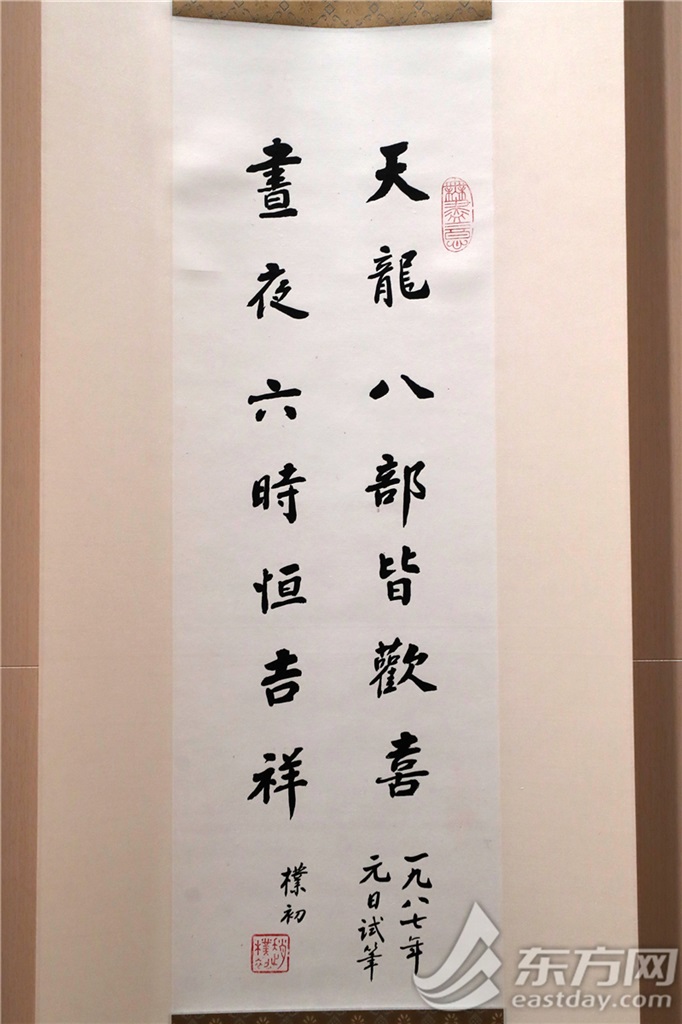 天龍八部皆歡喜
一九八七年
元日试筆
晝夜六時恒吉祥
樸初
無盡意
趙樸初
东方网
eastday.com